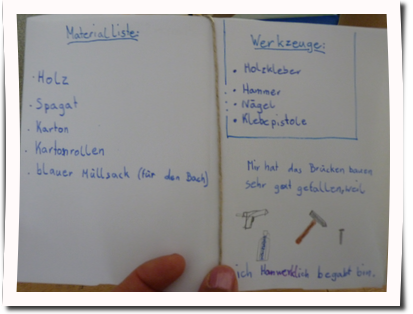 Materialliste:
· Holz
· Spagat
· Karton
· Kartonrollen
· blauer Müllsack (für den Bach)
Werkzeuge:
• Holzkleber
• Hammer
• Nägel
• Klebepistole
Mir hat das Brücken bauen
sehr gut gefallen, weil
ich Hanwerklich begabt bin.